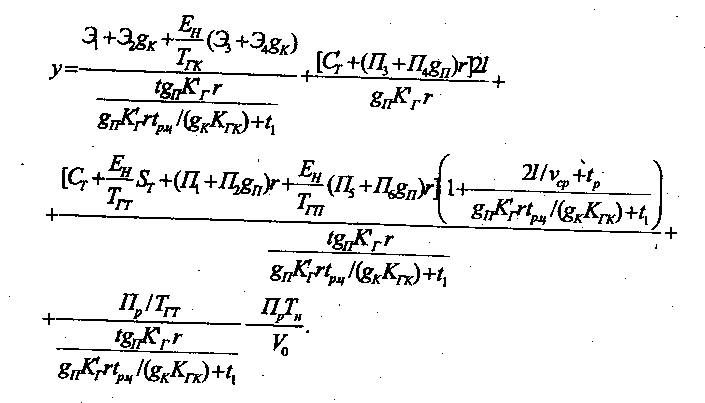 y = \frac{Э_1+Э_2g_К+\frac{E_Н}{T_{ГК}}(Э_3+Э_4g_К)}{\frac{tg_ПK'_Гr}{g_ПK'_Гrt_{р.ц}/(g_КK_{ГК})+t_1}} + \frac{[C'_Т+(П_3+П_4g_П)r]2l}{g_ПK'_Гr} +
+ \frac{[C_Т+\frac{E_Н}{T_{ГТ}}S_Т+(П_1+П_2g_П)r+\frac{E_Н}{T_{ГП}}(П_5+П_6g_П)r]\left(1+\frac{2l/v_{ср}+t_р}{g_ПK'_Гrt_{р.ц}/(g_КK_{ГК})+t_1}\right)}{\frac{tg_ПK'_Гr}{g_ПK'_Гrt_{р.ц}/(g_КK_{ГК})+t_1}} +
+ \frac{П_р/T_{ГТ}}{\frac{tg_ПK'_Гr}{g_ПK'_Гrt_{р.ц}/(g_КK_{ГК})+t_1}} - \frac{П_рT_н}{V_0}.